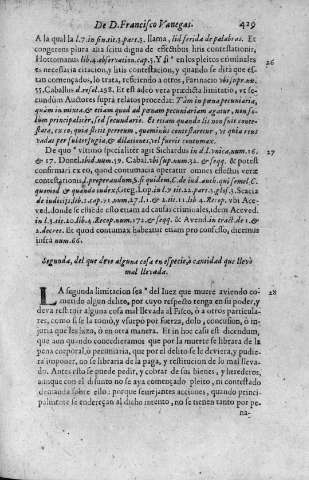 De D. Francisco Vanegas. 429
A la qual la l.7.in fin.tit.3.part.3. llama, lid ferida de palabras. Et
congerens plura alia scitu digna de effectibus litis contestationis,
Hottomanus lib.4.observation.cap.5. Y si en los pleitos criminales
es necessaria citacion, y litis contestacion, y quando se dirà que es- 26
tan començados, lo trata, refiriendo a otros, Farinacio
55. Caballus d. resol.298. Et est adeo vera prædicta limitatio, vt se-
cundum Auctores supra relatos procedat: Tàm in pœna pecuniaria,
quàm in mixta, & etiam quod ad pœnam pecuniariam agatur, non so-
lum principaliter, sed secundario. Et etiam quando lis non fuit conte-
stata, ex eo, quia stetit per reum, quominus contestaretur, vt quia reus
vadas per subterfugia, & dilationes, vel fuerit contumax.
De quo vltimo specialiter agit Sichardus in d.l.vnica, num.16. 27
& 17. Donel. ibid.num.39. Cabal. vbi sup.num.32. & seqq. & potest
confirmari ex eo, quod contumacia operatur omnes effectus veræ
contestationis, l. properandum, §. si quidem, C. de iud. auth. qui semel, C.
quomod. & quando iudex, Greg. Lop. in l.9 tit.22.part.3.glos.3. Scacia
de iudiciis, lib.2.cap.71.num.27. l.1. & 2.tit.11.lib.4.Recop. vbi Aze-
ued. donde se estiende esto etiam ad causas criminales, idem Aceued.
in l.3.tit.10.lib.4.Recop.num.172. & seqq. & Avend. in tract. de 1. &
2. decret. Et quod contumax habeatur etiam pro confesso, diximus
iuxta num.66.
Segunda, del que deve alguna cosa en especie, ò cantidad que llevò
mal llevada.
LA segunda limitacion sea del Iuez que muere aviendo co- 28
metido algun delito, por cuyo respecto tenga en su poder, y
deva restituir alguna cosa mal llevada al Fisco, ò a otros particula-
res, como si se la tomò, y vsurpò por fuerça, dolo, concusion, ò in-
juria que les hizo, ò en otra manera. Et in hoc casu est dicendum,
que aun quando concedieramos que por la muerte se librara de la
pena corporal, ò pecuniaria, que por el delito se le deviera, y pudie-
ra imponer, no se libraria de la paga, y restitucion de lo mal lleva-
do. Antes esto se puede pedir, y cobrar de sus bienes, y herederos,
aunque con el difunto no se aya començado pleito, ni contestado
demanda sobre ello: porque semejantes acciones, quando princi-
palmente se endereçan al dicho intento, no se tienen tanto por pe-
na-